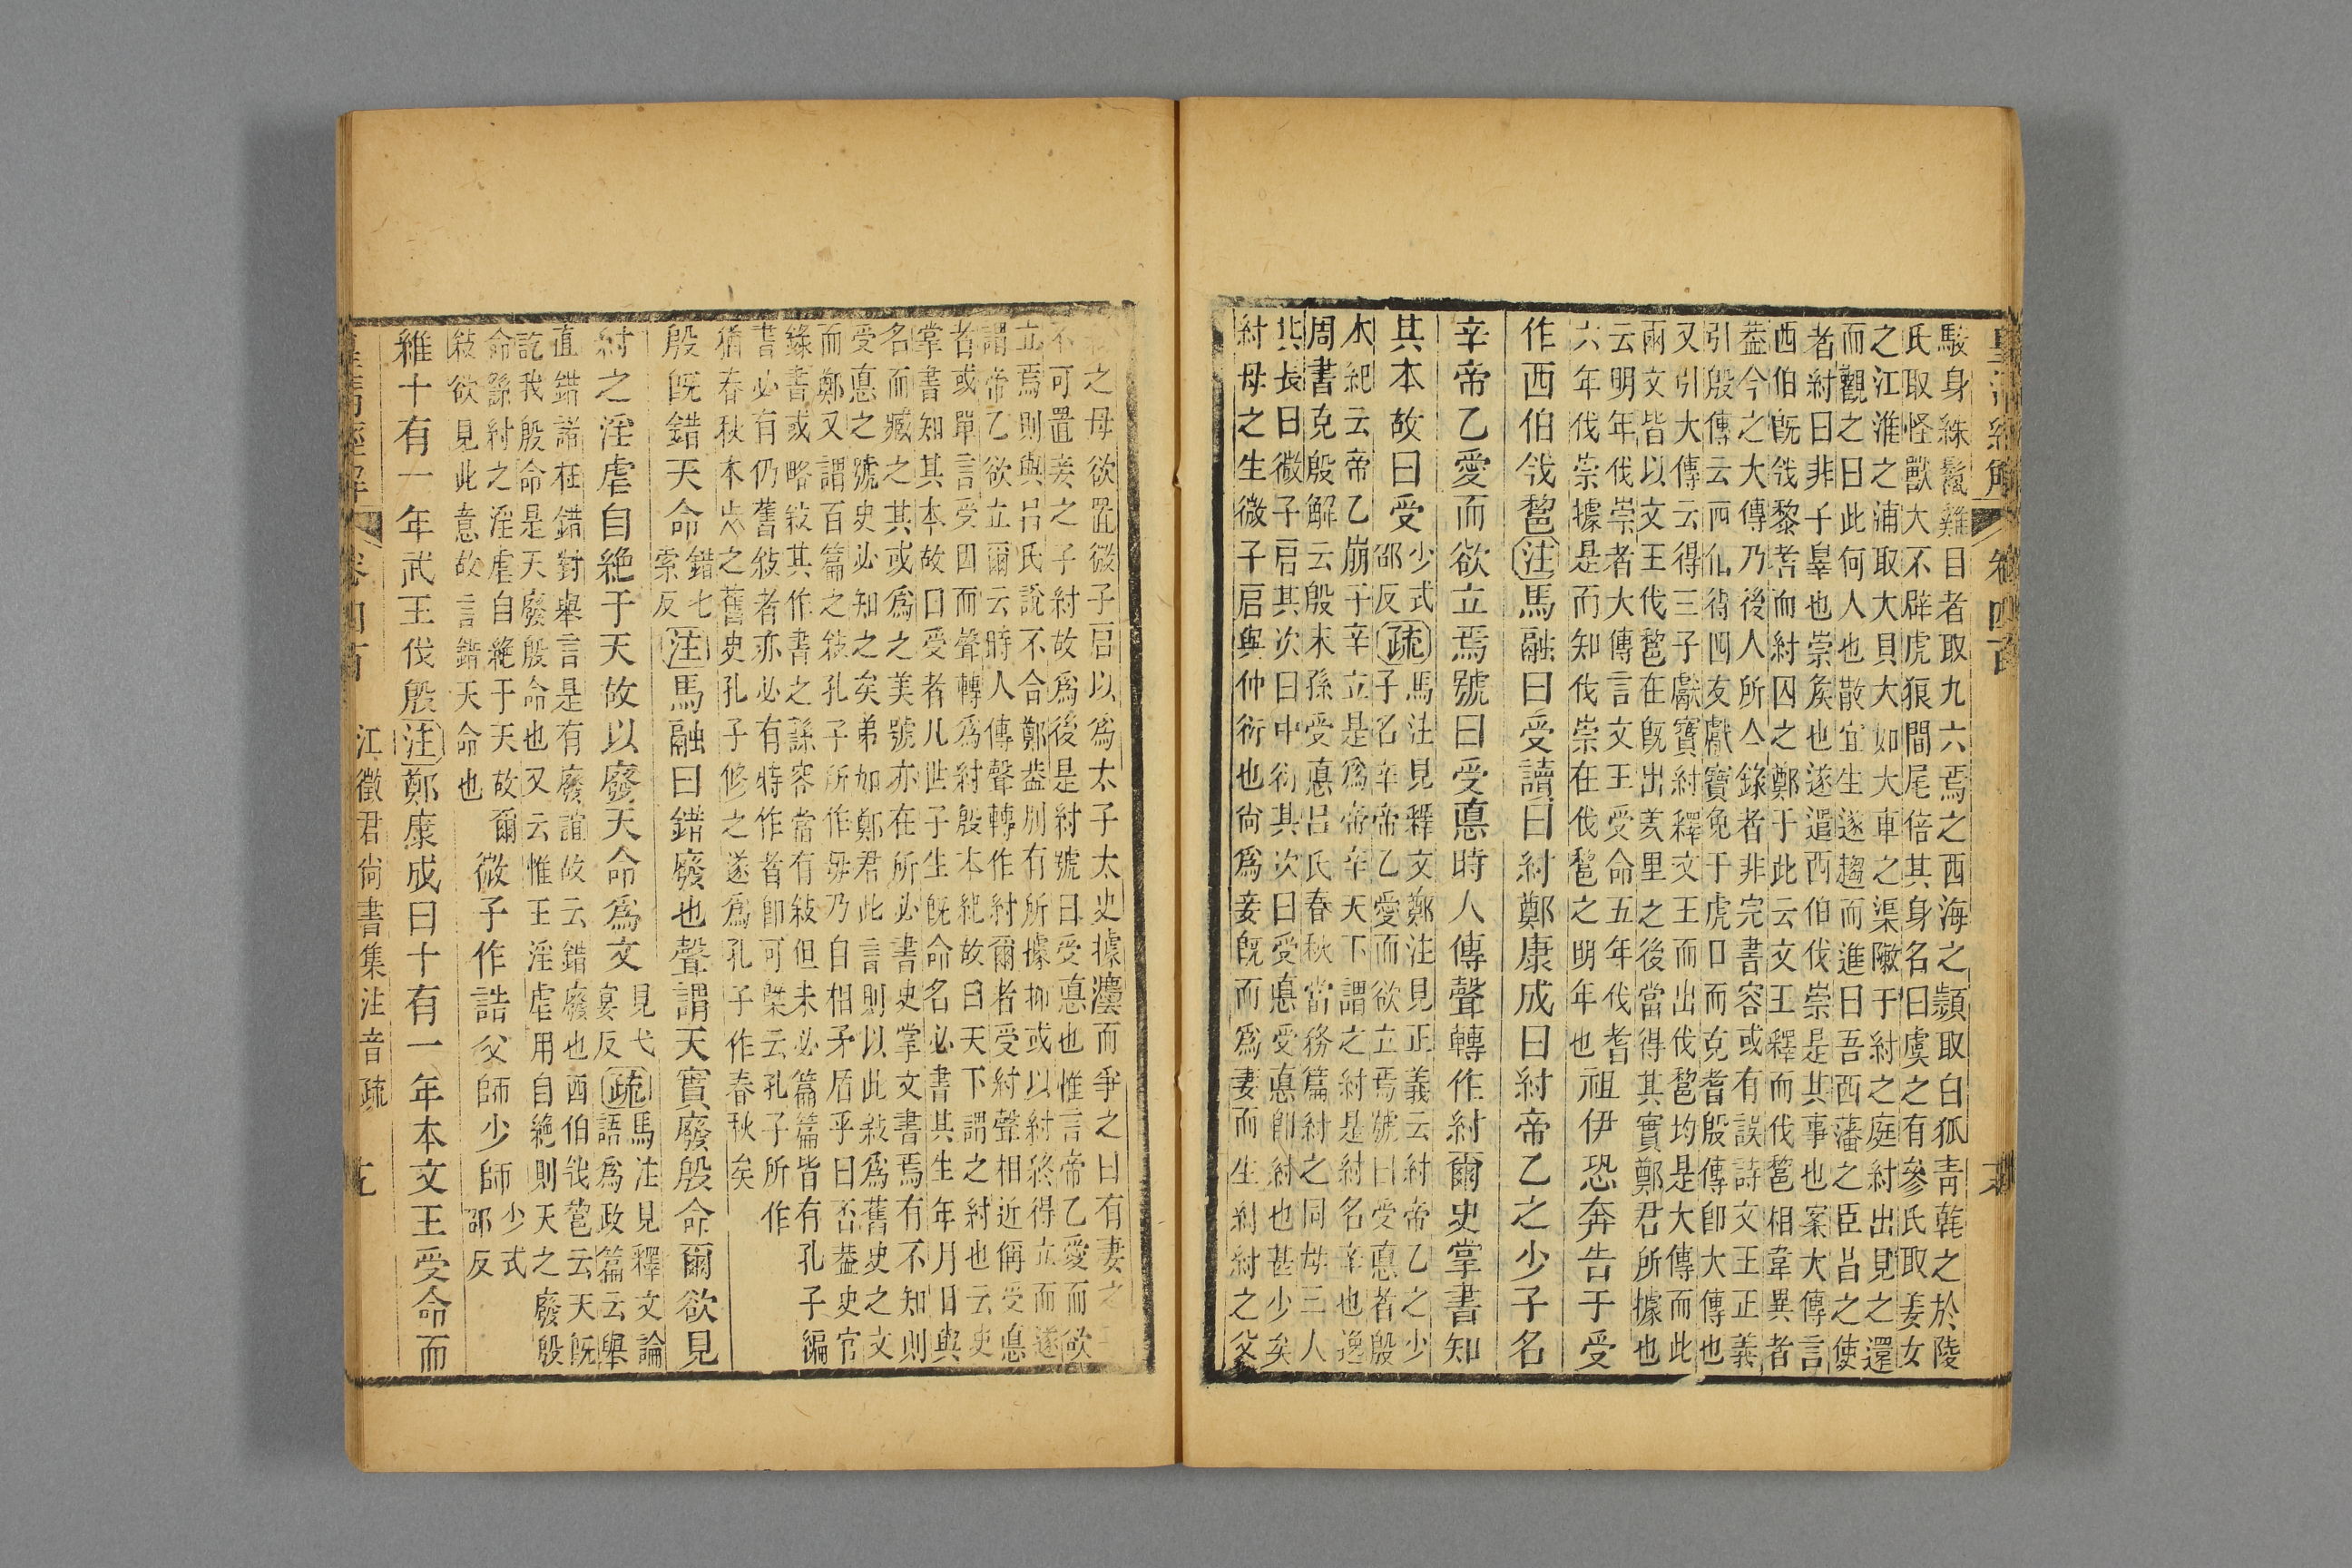 皇清經解 卷四百
駮身絲鬣雞目者取九六焉之西海之濒取白狐靑䰣之於陵
氏取怪獸大不辟虎狼間尾倍其身名曰虞之有參氏取姜女
之江淮之浦取大貝大如大車之渠敶于紂之庭紂出見之還
而觀之曰此何人也散宜生遂趨而進曰吾西藩之臣昌之使
者紂曰非子辠也崇矦也遂遣西伯伐崇是其事也案大傳言
西伯旣𢦟黎苦而紂囚之鄭于此云文王釋而伐𨛫相韋異者
葢今之大傳乃後人所亼錄者非完書容或有誤詩文王正義
引殷傳云西伯得四友獻寶免于虎口而克耆殷傳卽大傳也
又引大傳云得三子獻寶紂釋文王而出伐𨛫均是大傳而此
兩文皆以文王伐𨛫在旣出羑里之後當得其實鄭君所據也
云明年伐崇者大傳言文王受命五年伐耆
六年伐崇據是而知伐崇在伐𨛫之明年也
祖伊恐奔告于受
作西伯𢦟𨛫注馬融曰受讀曰紂鄭康成曰紂帝乙之少子名
辛帝乙愛而欲立焉號曰受悳時人傳聲轉作紂爾史掌書知
其本故曰受
少式
邵反
疏
馬注見釋文鄭注見正義云紂帝乙之少
子名辛帝乙愛而欲立焉號曰受悳者殷
本紀云帝乙崩子辛立是爲帝辛天下謂之紂是紂名辛也逸
周書克殷解云殷末孫受悳呂氏春秋當務篇紂之同母三人
其長曰微子启其次曰中衍其次曰受悳受悳卽紂也甚少矣
紂母之生微子启與仲衍也尚爲妾旣而爲妻而生紂紂之父
之母欲置微子启以爲太子太史據灋而爭之曰有妻之
不可置妾之子紂故爲後是紂號曰受悳也惟言帝乙愛而欲
立焉則與呂氏說不合鄭葢別有所據抑或以紂終得立而遂
謂帝乙欲立爾云時人傳聲轉作紂爾者受紂聲相近偁受悳
者或單言受因而聲轉爲紂殷本紀故曰天下謂之紂也云史
掌書知其本故曰受者凡世子生旣命名必書其生年月日與
名而臧之其或爲之美號亦在所必書史掌文書焉有不知則
受悳之號史必知之矣弟如鄭君此言則以此敍爲舊史之文
而鄭又謂百篇之敍孔子所作毋乃自相矛盾乎曰否葢史官
錄書或略敍其作書之繇容當有敍但未必篇篇皆有孔子編
書必有仍舊敍者亦必有特作者卽可槩云孔子所作
猶春秋本㞢之舊史孔子修之遂爲孔子作春秋矣
殷旣錯天命
錯七
索反
注馬融曰錯廢也聲謂天實廢殷命爾欲見
紂之淫虐自絶于天故以廢天命爲文
見弋
宴反
疏
馬注見釋文論
語爲政篇云舉
直錯諸枉錯對舉言是有廢誼故云錯廢也西伯𢦟𨛫云天旣
訖我殷命是天廢殷命也又云惟王淫虐用自絶則天之廢殷
命繇紂之淫虐自絶于天故爾
敍欲見此意故言錯天命也
微子作誥父師少師
少式
邵反
維十有一年武王伐殷注鄭康成曰十有一年本文王受命而
皇淸經解 卷四百 江徵君尚書集注音疏